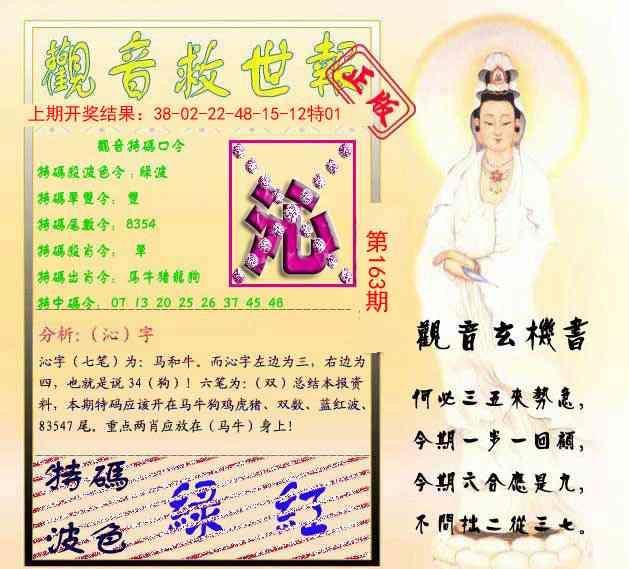 觀音救世報
正版
上期开奖结果：38-02-22-48-15-12特01
觀音特碼口令
特碼殺波色令：綠波
特碼單雙令： 雙
特碼尾數令：8354
特碼殺肖令： 單
特碼出肖令： 馬牛猪龍狗
特中碼令： 07 13 20 25 26 37 45 48
沁
第163期
分析:（沁）字
沁字（七笔）为：马和牛。而沁字左边为三，右边为
四，也就是说 34（狗）！六笔为：（双）总结本报资
料，本期特码应该开在马牛狗鸡虎猪、双数、蓝红波、
83547 尾。重点两肖应放在（马牛）身上！
特碼
波色
綠 紅
觀音玄機書
何必三五來勢急，
今期一步一回顧，
今期六合應是九，
不問拙二從三七。